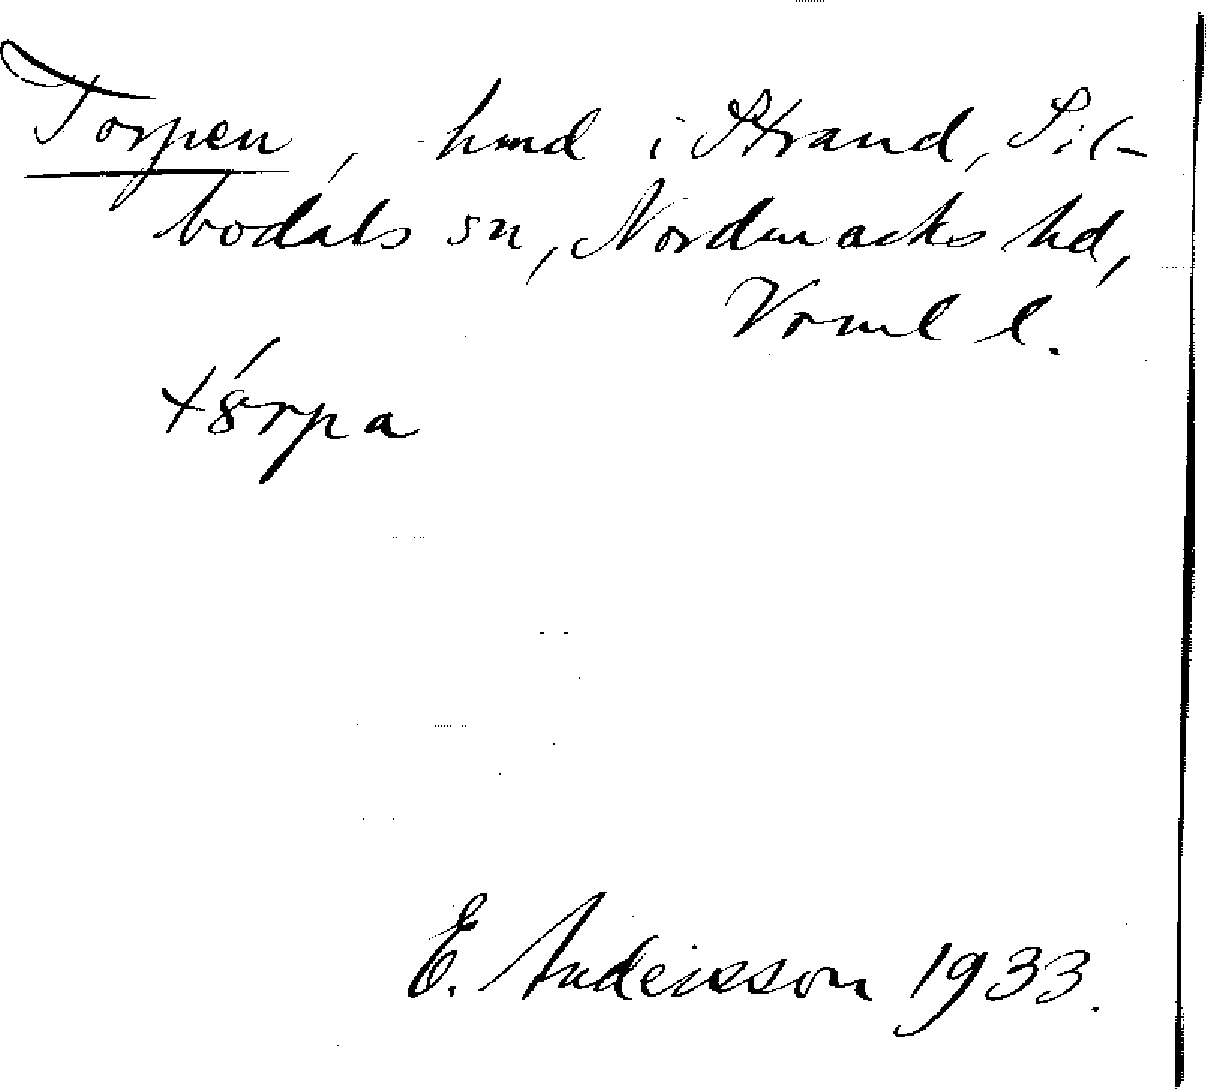 Torpen, hmd i Strand, Sil-
bodals sn, Nordmarks hd,
Vrml l.
E. Andersson 1933.